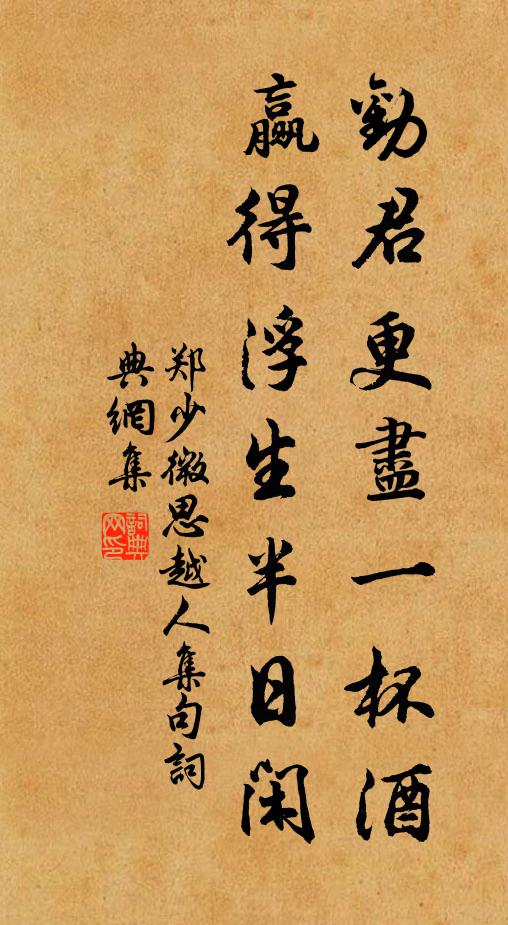 勸君更盡一杯酒
贏得浮生半日閑
郑少微思越人集句詞
典網集
詞典网印